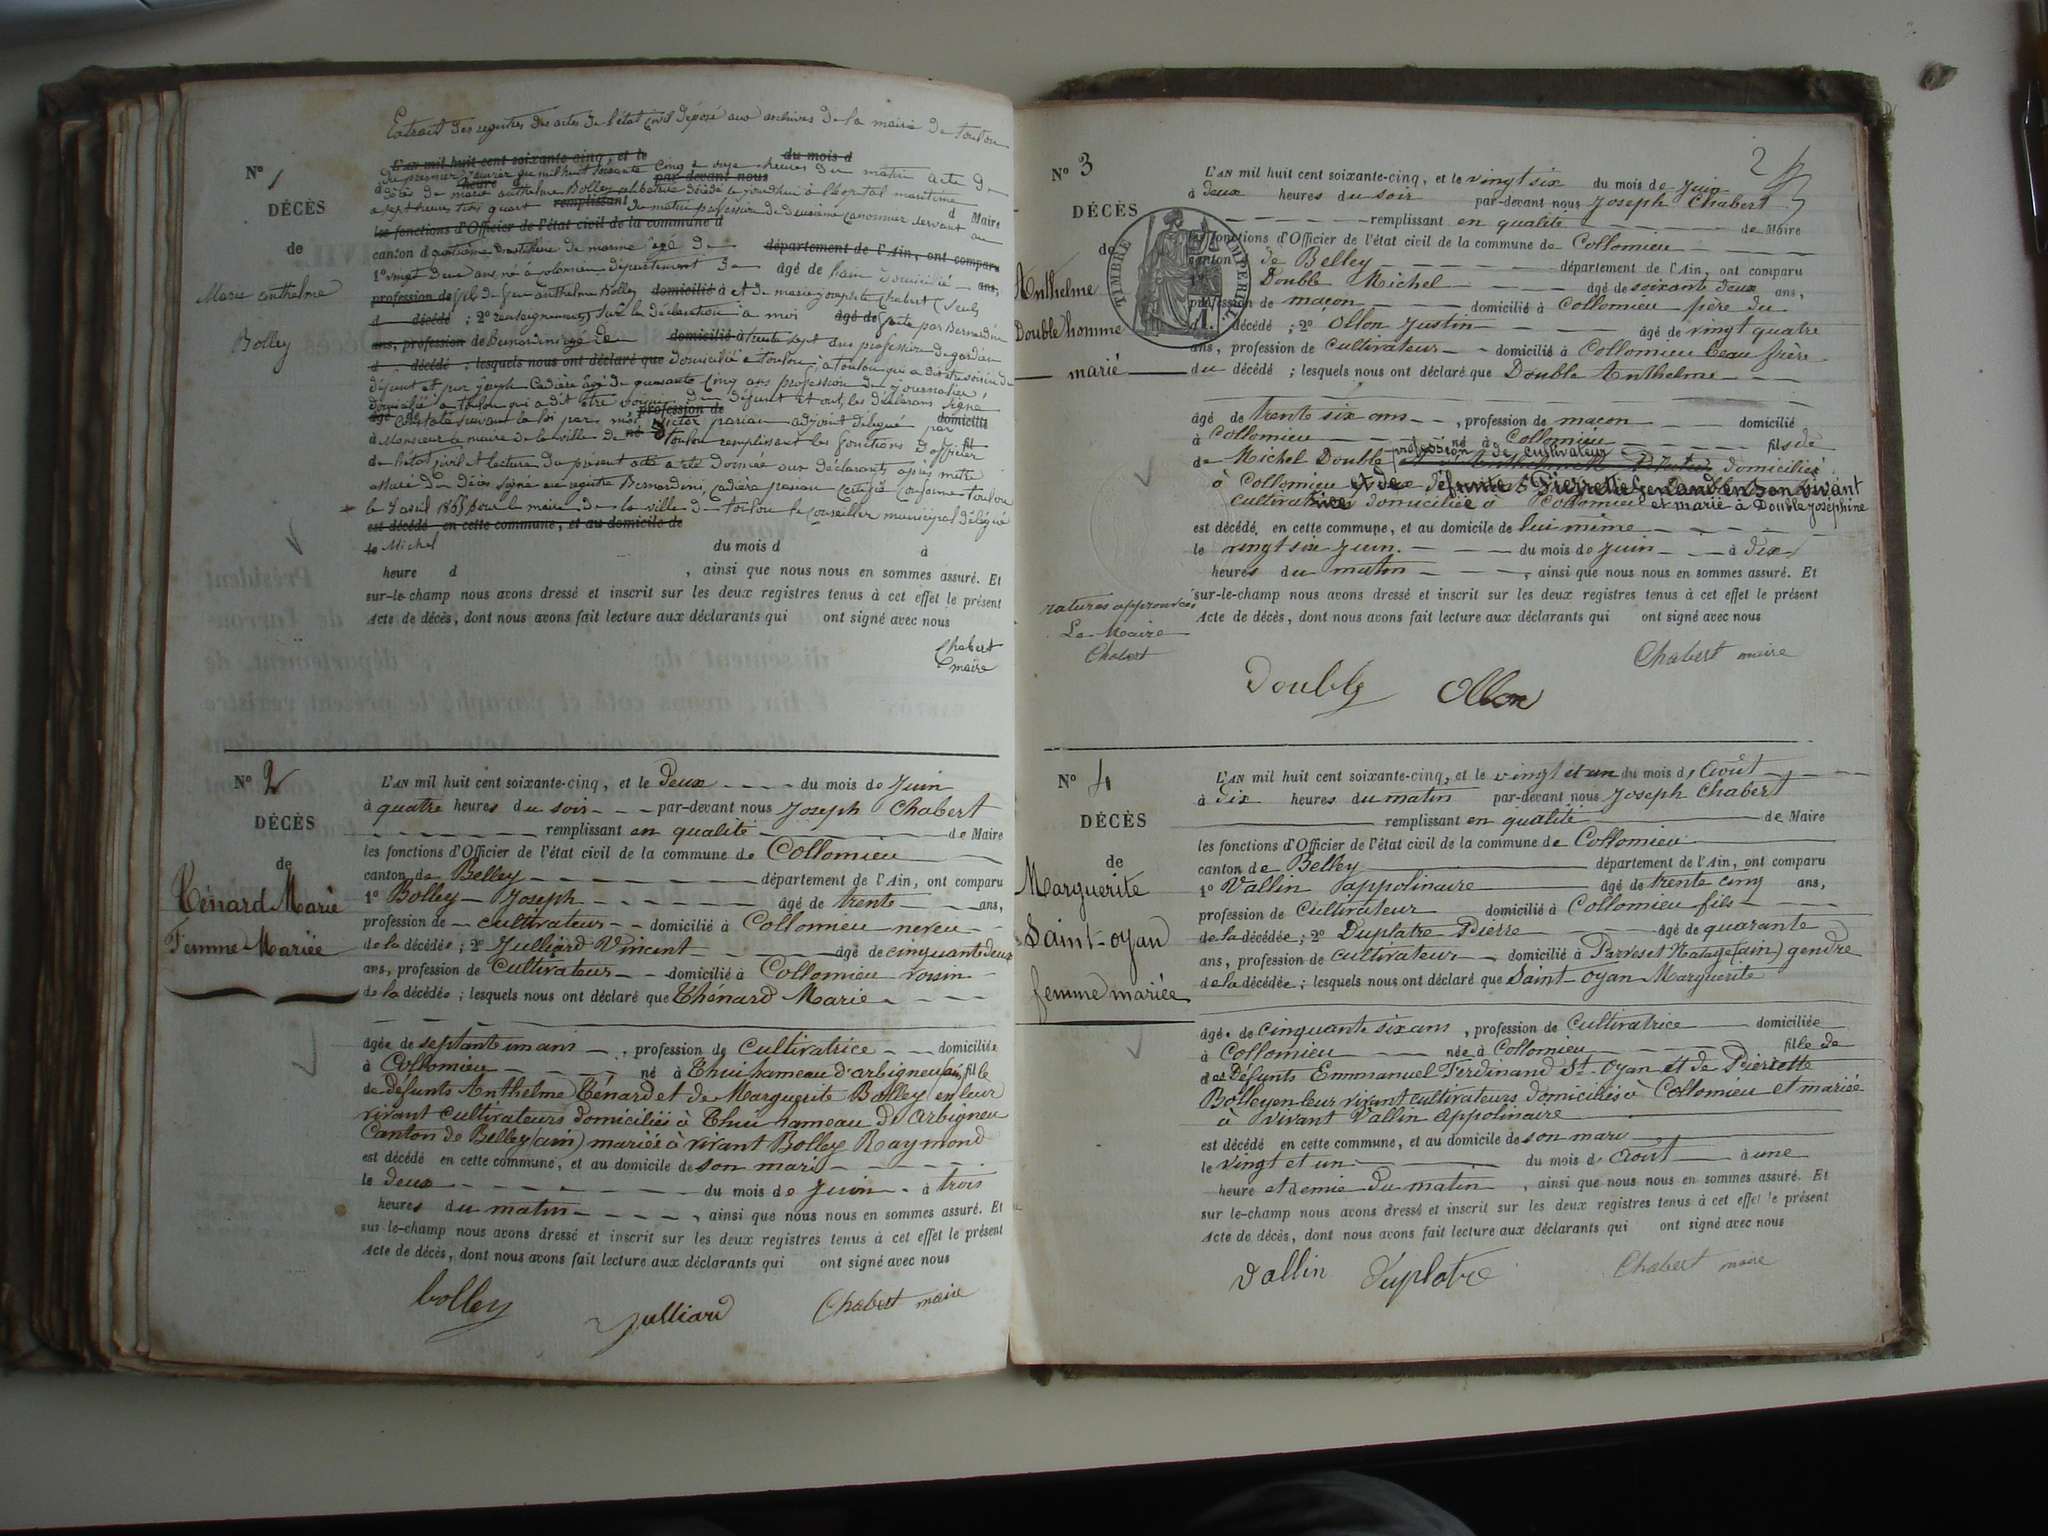 Extrait des registres des actes de l'état civil déposé aux archives de la mairie de toulon
No 1
DÉCÈS
de
Marie anthelme
Bolley
L'AN mil huit cent soixante-cinq, et le du mois d
du premier janvier que mil huit soixante cinq à onze heures du matin acte de
décès de marie anthelme Bolley célibataire décédé ce jourd'hui à l'hopital maritime
a sept heures trois quart remplissant du matin profession de deuxième canonnier servant au
les fonctions d'Officier de l'état civil de la commune d Maire
canton d quatrième d'artillerie de marine âgé de département de l'Ain, ont comparu
1o vingt deux ans né à colomieu département de âgé de l'ain domicilié ans,
profession de fils de feu anthelme Bolley domicilié à et de marie josephte Chabert (seuls
d décédé ; 2o renseignements) sur la déclaration à moi âgé de faite par Bernardini
ans, profession de Bernardini âgé de domicilié à trente sept ans profession de gardien
d décédé ; lesquels nous ont déclaré que domicilié à toulon, à toulon qui a dit être voisin du
défunt et par joseph Cadière âgé de quarante cinq ans profession de journalier,
domicilié à toulon qui a dit être voisin du défunt et ont, les déclarans signé
âgé Constaté suivant la loi par moi profession de Victor pariau adjoint délégué par domicilié
à Monsieur le maire de la ville de né à toulon remplissant les fonctions d'officier fil
de l'état civil et lecture du présent acte a été donnée aux déclarants après m'être
assuré du décès signé au registre Bernardini, cadière pariau Certifié conforme toulon
le 7 avril 1865 pour le maire de la ville de toulon le conseiller municipal délégué
est décédé en cette commune, et au domicile de
le Michel du mois d à
heure d , ainsi que nous nous en sommes assuré. Et
sur-le-champ nous avons dressé et inscrit sur les deux registres tenus à cet effet le présent
Acte de décès, dont nous avons fait lecture aux déclarants qui ont signé avec nous
Chabert
maire
No 2
DÉCÈS
de
Ténard Marie
Femme Mariée
L'AN mil huit cent soixante-cinq, et le deux du mois de Juin
à quatre heures du soir par-devant nous Joseph Chabert
remplissant en qualité de Maire
les fonctions d'Officier de l'état civil de la commune de Collomieu
canton de Belley département de l'Ain, ont comparu
1o Bolley Joseph âgé de trente ans,
profession de cultivateur domicilié à Collomieu neveu
de la décédée ; 2o Julliard Vincent âgé de cinquante deux
ans, profession de Cultivateur domicilié à Collomieu voisin
de la décédée ; lesquels nous ont déclaré que Thénard Marie
âgée de septante un ans , profession de Cultivatrice domiciliée
à Collomieu né à Thui hameau d'arbigneu (ain) fille
de défunts Anthelme Ténard et de Marguerite Bolley en leur
vivant cultivateurs domiciliés à Thui hameau de Arbigneu
Canton de Belley (ain) mariée à vivant Bolley Raymond
est décédé en cette commune, et au domicile de son mari
le deux du mois de Juin à trois
heures du matin , ainsi que nous nous en sommes assuré. Et
sur-le-champ nous avons dressé et inscrit sur les deux registres tenus à cet effet le présent
Acte de décès, dont nous avons fait lecture aux déclarants qui ont signé avec nous
bolley Julliard Chabert maire
2
No 3
DÉCÈS
de
Anthelme
Double homme
marié
TIMBRE IMPERIAL
L'AN mil huit cent soixante-cinq, et le vingt six du mois de Juin
à deux heures du soir par-devant nous Joseph Chabert
remplissant en qualité de Maire
les fonctions d'Officier de l'état civil de la commune de Collomieu
canton de Belley département de l'Ain, ont comparu
Double Michel âgé de soixante deux ans,
profession de maçon domicilié à Collomieu père du
décédé ; 2o Ollon Justin âgé de vingt quatre
ans, profession de Cultivateur domicilié à Collomieu beau frère
du décédé ; lesquels nous ont déclaré que Double Anthelme
âgé de trente six ans , profession de maçon domicilié
à Collomieu né à Collomieu fils de
de Michel Double profession de cultivateur domicilié
à Collomieu et de défunte Pierrette en son vivant
cultivatrice domiciliée à Collomieu et marié à Double Joséphine
est décédé en cette commune, et au domicile de lui même
le vingt six Juin du mois de Juin à dix
heures du matin , ainsi que nous nous en sommes assuré. Et
sur-le-champ nous avons dressé et inscrit sur les deux registres tenus à cet effet le présent
Acte de décès, dont nous avons fait lecture aux déclarants qui ont signé avec nous
ratures approuvées
Le Maire
Chabert
Chabert maire
Double Ollon
No 4
DÉCÈS
de
Marguerite
Saint-oyan
femme mariée
L'AN mil huit cent soixante-cinq, et le vingt et un du mois d'Août
à dix heures du matin par-devant nous Joseph Chabert
remplissant en qualité de Maire
les fonctions d'Officier de l'état civil de la commune de Collomieu
canton de Belley département de l'Ain, ont comparu
1o Vallin Jappolinaire âgé de trente cinq ans,
profession de Cultivateur domicilié à Collomieu fils
de la décédée ; 2o Duplatre Pierre âgé de quarante
ans, profession de cultivateur domicilié à Parves et Natage (ain) gendre
de la décédée ; lesquels nous ont déclaré que Saint-Oyan Marguerite
âgé de cinquante six ans , profession de Cultivatrice domiciliée
à Collomieu née à Collomieu fille de
des défunts Emmanuel Ferdinand St-Oyan et de Pierrette
Bolley en leur vivant cultivateurs domiciliés à Collomieu et mariée
à vivant Vallin Appolinaire
est décédé en cette commune, et au domicile de son mari
le vingt et un du mois d'Août à une
heure et demie du matin , ainsi que nous nous en sommes assuré. Et
sur le-champ nous avons dressé et inscrit sur les deux registres tenus à cet effet le présent
Acte de décès, dont nous avons fait lecture aux déclarants qui ont signé avec nous
Vallin Duplatre Chabert maire